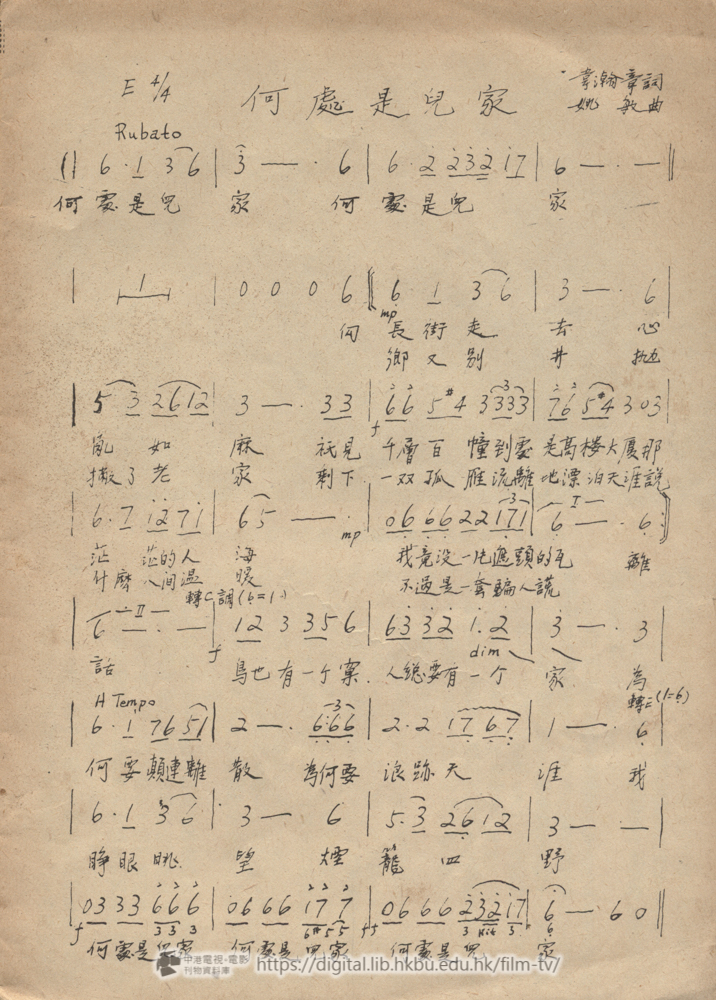 E 4/4 何處是兒家 韋瀚章詞
姚敏曲
Rubato
6· 1 3 6 | 3 — · 6 | 6· 2 2 3 2 1 7 | 6 — · —
何處是兒 家 何 處是兒 家
| 1 | 0 0 0 6 | 6· 1 3 6 | 3 — · 6 |
mp
向 長街走 去 心
鄉又別 井 拋
| 5 3 2 6 1 2 | 3 — · 3 3 | 6 6 5 #4 3 3 3 3 | 7 6 5 #4 3 0 3 |
f
亂如 麻 祇見 千層百幢到處 是高樓大廈那
撇了老 家 剩下 一双孤雁流離 地漂泊天涯說
6· 7 1 2 7 1 | 6 5 — · | 0 6 6 6 2 2 1 7 1 | 6 — · 6
mp
I
茫茫的人 海 我竟沒一片遮頭的瓦 離
什麽人間溫 暖 不過是一套騙人謊
轉C調(6=1)
II
6 — · — | 1 2 3 3 5 6 | 6 3 3 2 1· 2 | 3 — · 3 |
f dim
話 鳥也有一个窠 人總要有一个 家 為
轉=(1=6)
A Tempo
6· 1 7 6 5 1 | 2 — · 6 6 6 | 2· 2 1 7 6 7 | 1 — · 6 |
何要顛連離 散 為何要 浪跡天 涯 我
| 6· 1 3 6 | 3 — 6 | 5· 3 2 6 1 2 | 3 — — |
睜眼眺 望 煙 籠四 野
| 0 3 3 3 6 6 6 | 0 6 6 6 1 7 7 | 0 6 6 6 2 3 2 1 7 | 6 — 6 0 ‖
f 3 3 3 6 #5 5 ff 3 3 6
何處是兒家 何處是兒家 何處是兒 家
中港電視·電影
刊物資料庫 https://digital.lib.hkbu.edu.hk/film-tv/